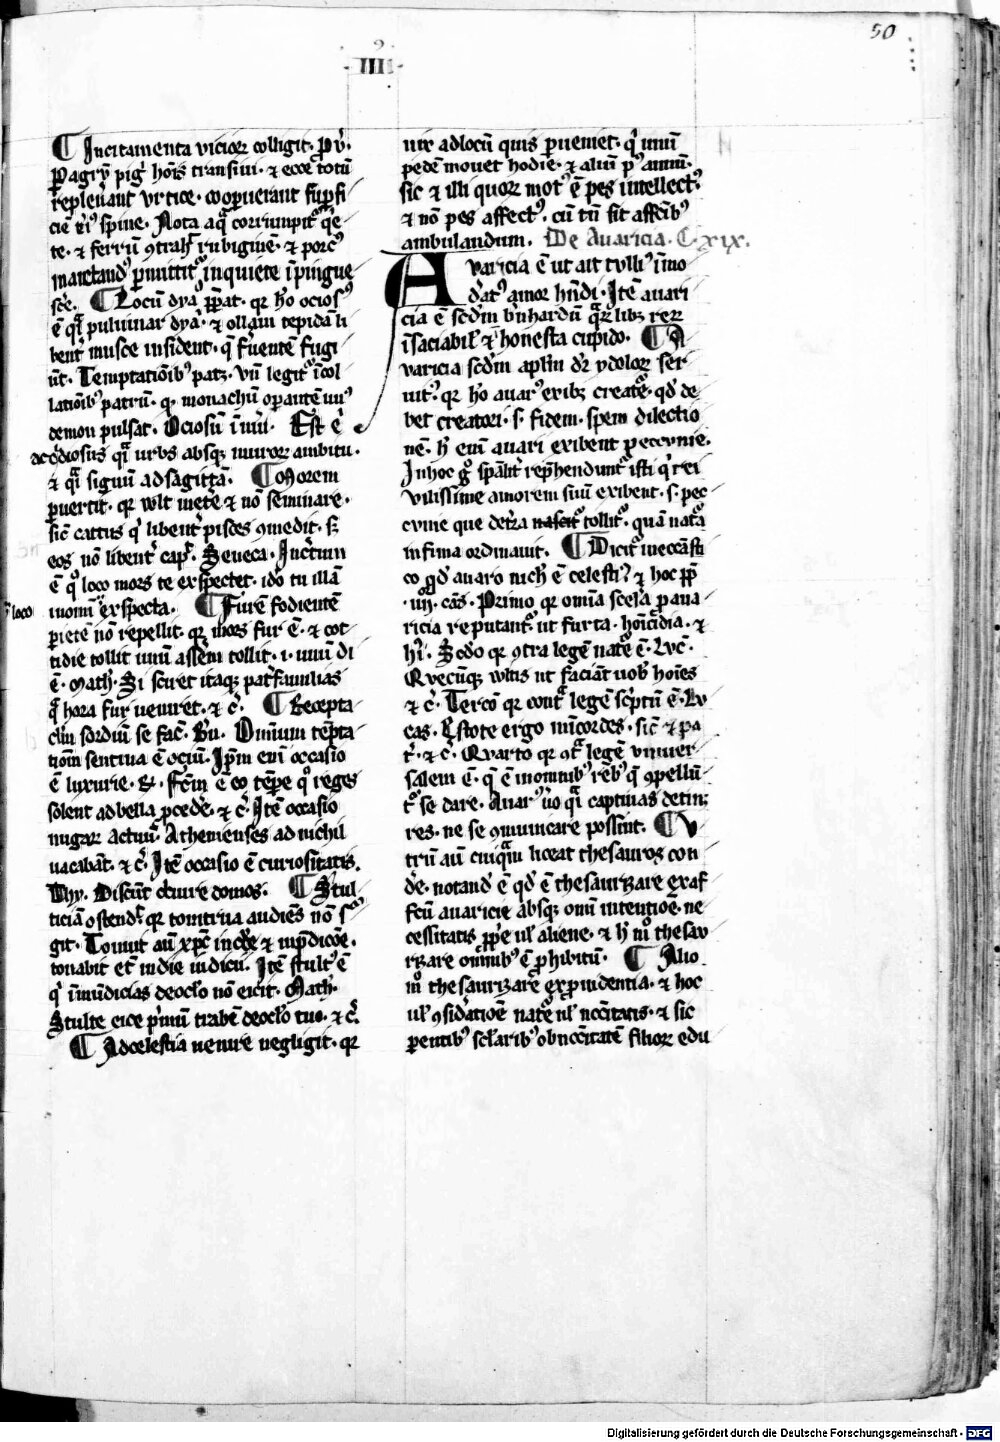 50
IIII
¶ Incitamenta vicior colligit. pv̄.
p̄ agrū pigͥ hoīs transiui. ⁊ ecce totū
repleuāant vrtice. cooperuerant suꝑfi
ciē eiꝰ spine. Nota aq̄ corrumpitᷣ q̄e
te. ⁊ ferrū ꝯtrahͭ rubiginē. ⁊ porcꝰ
inquiete īpingue
¶ Locū dyā p̄pat. qꝛ hō ociosꝰ
ē qͣi puluinar dyā. ⁊ ollam tepidā li
bentͥ musce insident. q̄ feruentē fugi
ūt. Temptatiōibꝰ patꝫ. Vn̄ legitᷣ ī col
latiōibꝰ patrū. ꝙ monachū oꝑantē vnꝰ
demon pulsat. Ociosū
accidiosus qͣi urbs absqꝫ muroꝝ ambitu.
⁊ qͣi signū ad sagittā. ¶ Morem
ꝑuertit. qꝛ vult metͤe ⁊ nō seminare.
sic̄ cattus qͥ libentͥ pisces ꝯmedit. sꝫ
eos nō libentͥ capͭ. Seneca. Incͥtum
ē qͦ loco mors te exspectet. idō tu illā
in omī exspecta. ¶ Furē fodientē
loco
pietē nō repellit. qꝛ mors fur ē. ⁊ cot
tidie tollit vnū assem tollit. i. vnū di
ē. Math. Si sciret itaqꝫ paterfamilias
qͣ hora fur veniret. ⁊ c̄. ¶ Recepta
clm̄ sordiū se fac̄. Bn̄. Omnium tēpta
tiōm sentina ē ociū. Ip̄m eni occasio
ē luxurie. Fc̄m ē eo tēpe qͦ reges
solent ad bella ꝓcedͤe. ⁊ c̄. Itē occasio
nugaꝝ actiuū. Athenienses ad nichil
uacabāt. ⁊ c̄. Itē occasio ē curiositatis.
Thy. Discūt circuire domos. ¶ Stul
ticiā ostendͭ. qꝛ tonitrua audiēs nō sͬ
git. Tonuit aū xp̄c in cͬce ⁊ in p̄dicōe.
tonabit etͣ in die iudicii. Itē stultꝰ ē
qͥ īmūdicias de oclo nō eicit. Math.
Stulte eice pͥmū trabē de oclo tuo. ⁊ c̄.
¶ Ad celestia venire negligit. qꝛ
uix ad locū quis ꝑueniet. qͥ vnū
pedē mouet hodie. ⁊ aliū pꝰ annū.
sic ⁊ illi quoꝝ motꝰ ē pes intellectꝰ.
⁊ nō pes affectꝰ. cū tn̄ sit affc̄ibꝰ
ambulandum. De Auaricia. C. xix.
Auaricia ē ut ait tulliꝰ īmo
dͤatꝰ amor hn̄di. Itē auari
cia ē scdm bn̄hardū qͣꝝlibꝫ reꝝ
īsaciabilͥ ⁊ īhonesta cupido. ¶ A
varicia scdm aplm̄ dꝛ ydoloꝝ ser
uitꝰ. qꝛ hō auarꝰ exibꝫ creatͤe. qd̄ de
bet creatori. s. fidem. spem dilectio
nē. h̄ enī auari exibent peccunie.
In hoc gͦ spālit̄ rep̄hendunt̄ isti qͥ rei
vilissime amorem suū exibent. s. pec
cunie que de terra nascit tollitᷣ. quā natͣa
infima ordinauit. ¶ Dicit᷑ in ecc̄asti
co qd̄ auaro nich ē celesti. ⁊ hoc pp̄
.iiij. cās. Primo qꝛ omīa scelͣa p aua
ricia reputantᷣ. ut furta. homīcidia. ⁊
hͥ. Scdo qꝛ ꝯtra legē natͤe ē. Luc̄.
Quecūqꝫ wltis ut faciāt uob̄ hoīes
⁊ c̄. Tercō qꝛ contͣ legē scͥptū ē. Lu
cas. Estote ergo mīcordes. sic̄ ⁊ pa
tͬ. ⁊ c̄. Quarto qꝛ ꝯtͣ legē vniuer
salem ē. q̄ ē in omnibꝰ rebꝰ q̄ ꝯpellūt
tͬ se dare. Auarꝰ ūo qͣi captiuas detinꝫ
res. ne se ꝯmunicare possint. ¶ V
trū aū cuiqͣm liceat thesauros con
dͤe. notandꝰ ē qd̄ ē thesaurizare ex af
fcū auaricie absqꝫ omī intentiōe. ne
cessitatis ꝓpͥe ul aliene. ⁊ h̄ mͦ thesau
rizare omībꝰ ē ꝓhibitū. ¶ Alio
mͦ thesaurizare ex prouidentia. ⁊ hoc
ul ꝯsidͤatiōe natͤe ul nc̄citatis. ⁊ sic
parentibꝰ sclaribꝰ ob nc̄citatē filioꝝ edu
Digitalisierung gefördert durch die Deutsche Forschungsgemeinschaft - DFG